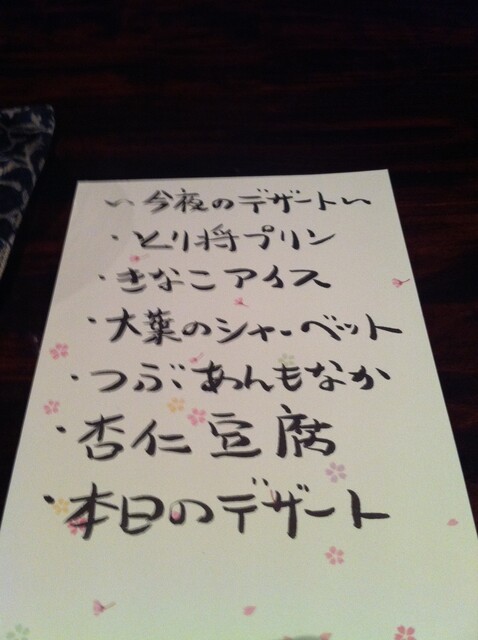 〜今夜のデザート〜
・とり将プリン
・きなこアイス
・大葉のシャーベット
・つぶあんもなか
・杏仁豆腐
・本日のデザート